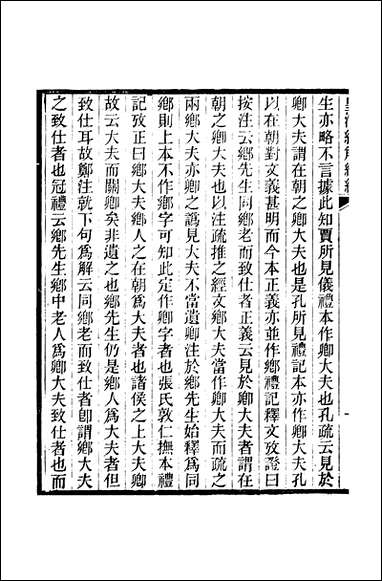 生亦略不言據此知賈所見儀禮本作卿大夫也孔疏云見於
卿大夫謂在朝之卿大夫也是孔所見禮記本亦作卿大夫孔
以在朝對文義甚明而今本正義亦並作鄉禮記釋文攷證曰
按注云鄉先生同鄉老而致仕者正義云見於卿大夫者謂在
朝之卿大夫也以注疏推之經文鄉大夫當作卿大夫而疏之
兩鄉大夫亦卿之譌見大夫不當遺卿注於鄉先生始釋爲同
鄉則上本不作鄉字可知此定作卿字者也張氏敦仁撫本禮
記攷正曰鄉大夫鄉人之在朝爲大夫者也諸侯之上大夫卿
故云大夫而關卿矣非遺之也鄉先生仍是鄉人爲大夫者但
致仕耳故鄭注就下句爲解云同鄉老而致仕者卽謂鄉大夫
之致仕者也冠禮云鄉先生鄉中老人爲卿大夫致仕者也而